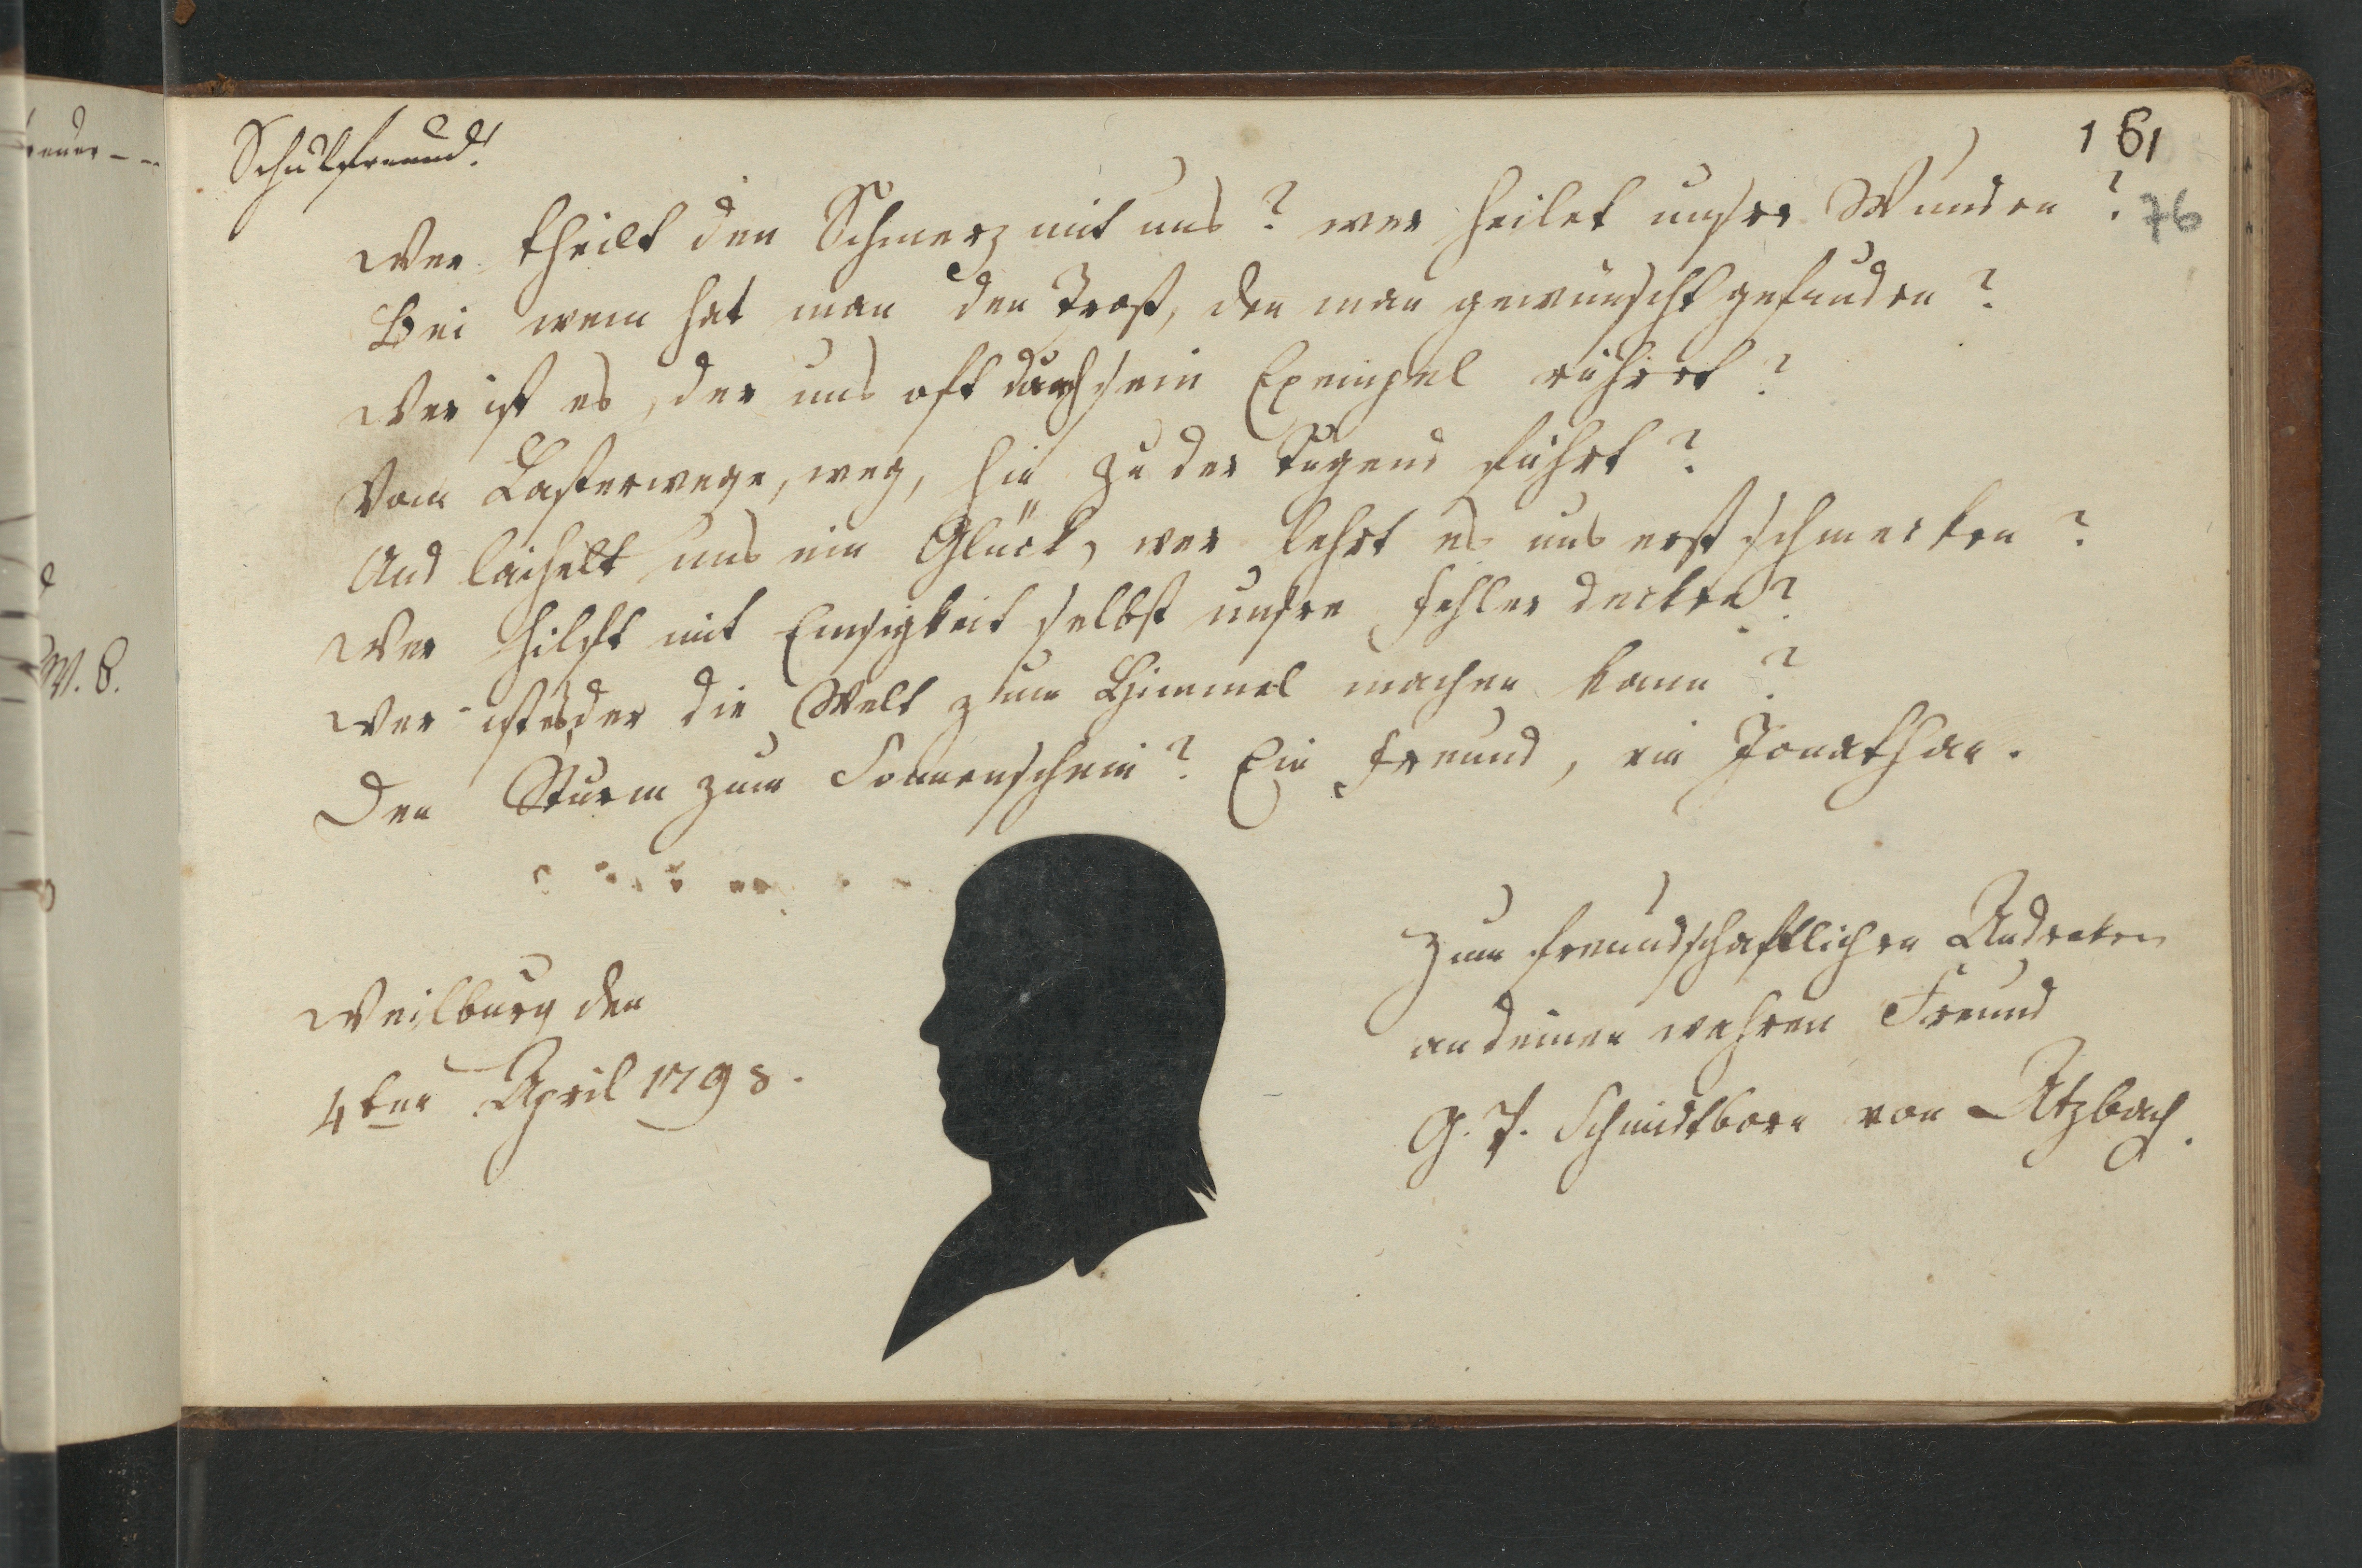 Schulfreund!
161
76
Wer theilt den Schmerz mit uns? wer heilet unsre Wunden?
Bei wem hat man den Trost, den man gewünscht gefunden?
Wer ist es, der uns oft durch sein Exempel rühret?
Vom Lasterwege, weg, hin zu der Tugend führt?
Und lächelt uns ein Glück, wer lehrt es uns erst schmecken?
Wer hilft mit Emsigkeit selbst unsre Fehler decken?
Wer ist es, der die Welt zum Himmel machen kann?
Den Sturm zum Sonnenschein? Ein Freund, ein Jonathan.
Weilburg den
4ten April 1798.
Zum freundschaftlichen Andenken
an deinen wahren Freund
G. P. Schmidtborn von Atzbach.
W. C.